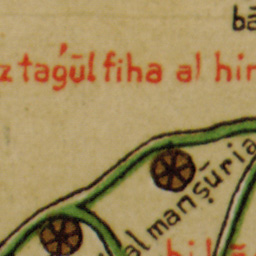 bā
z taģūl fiha al hin
al manṣūria